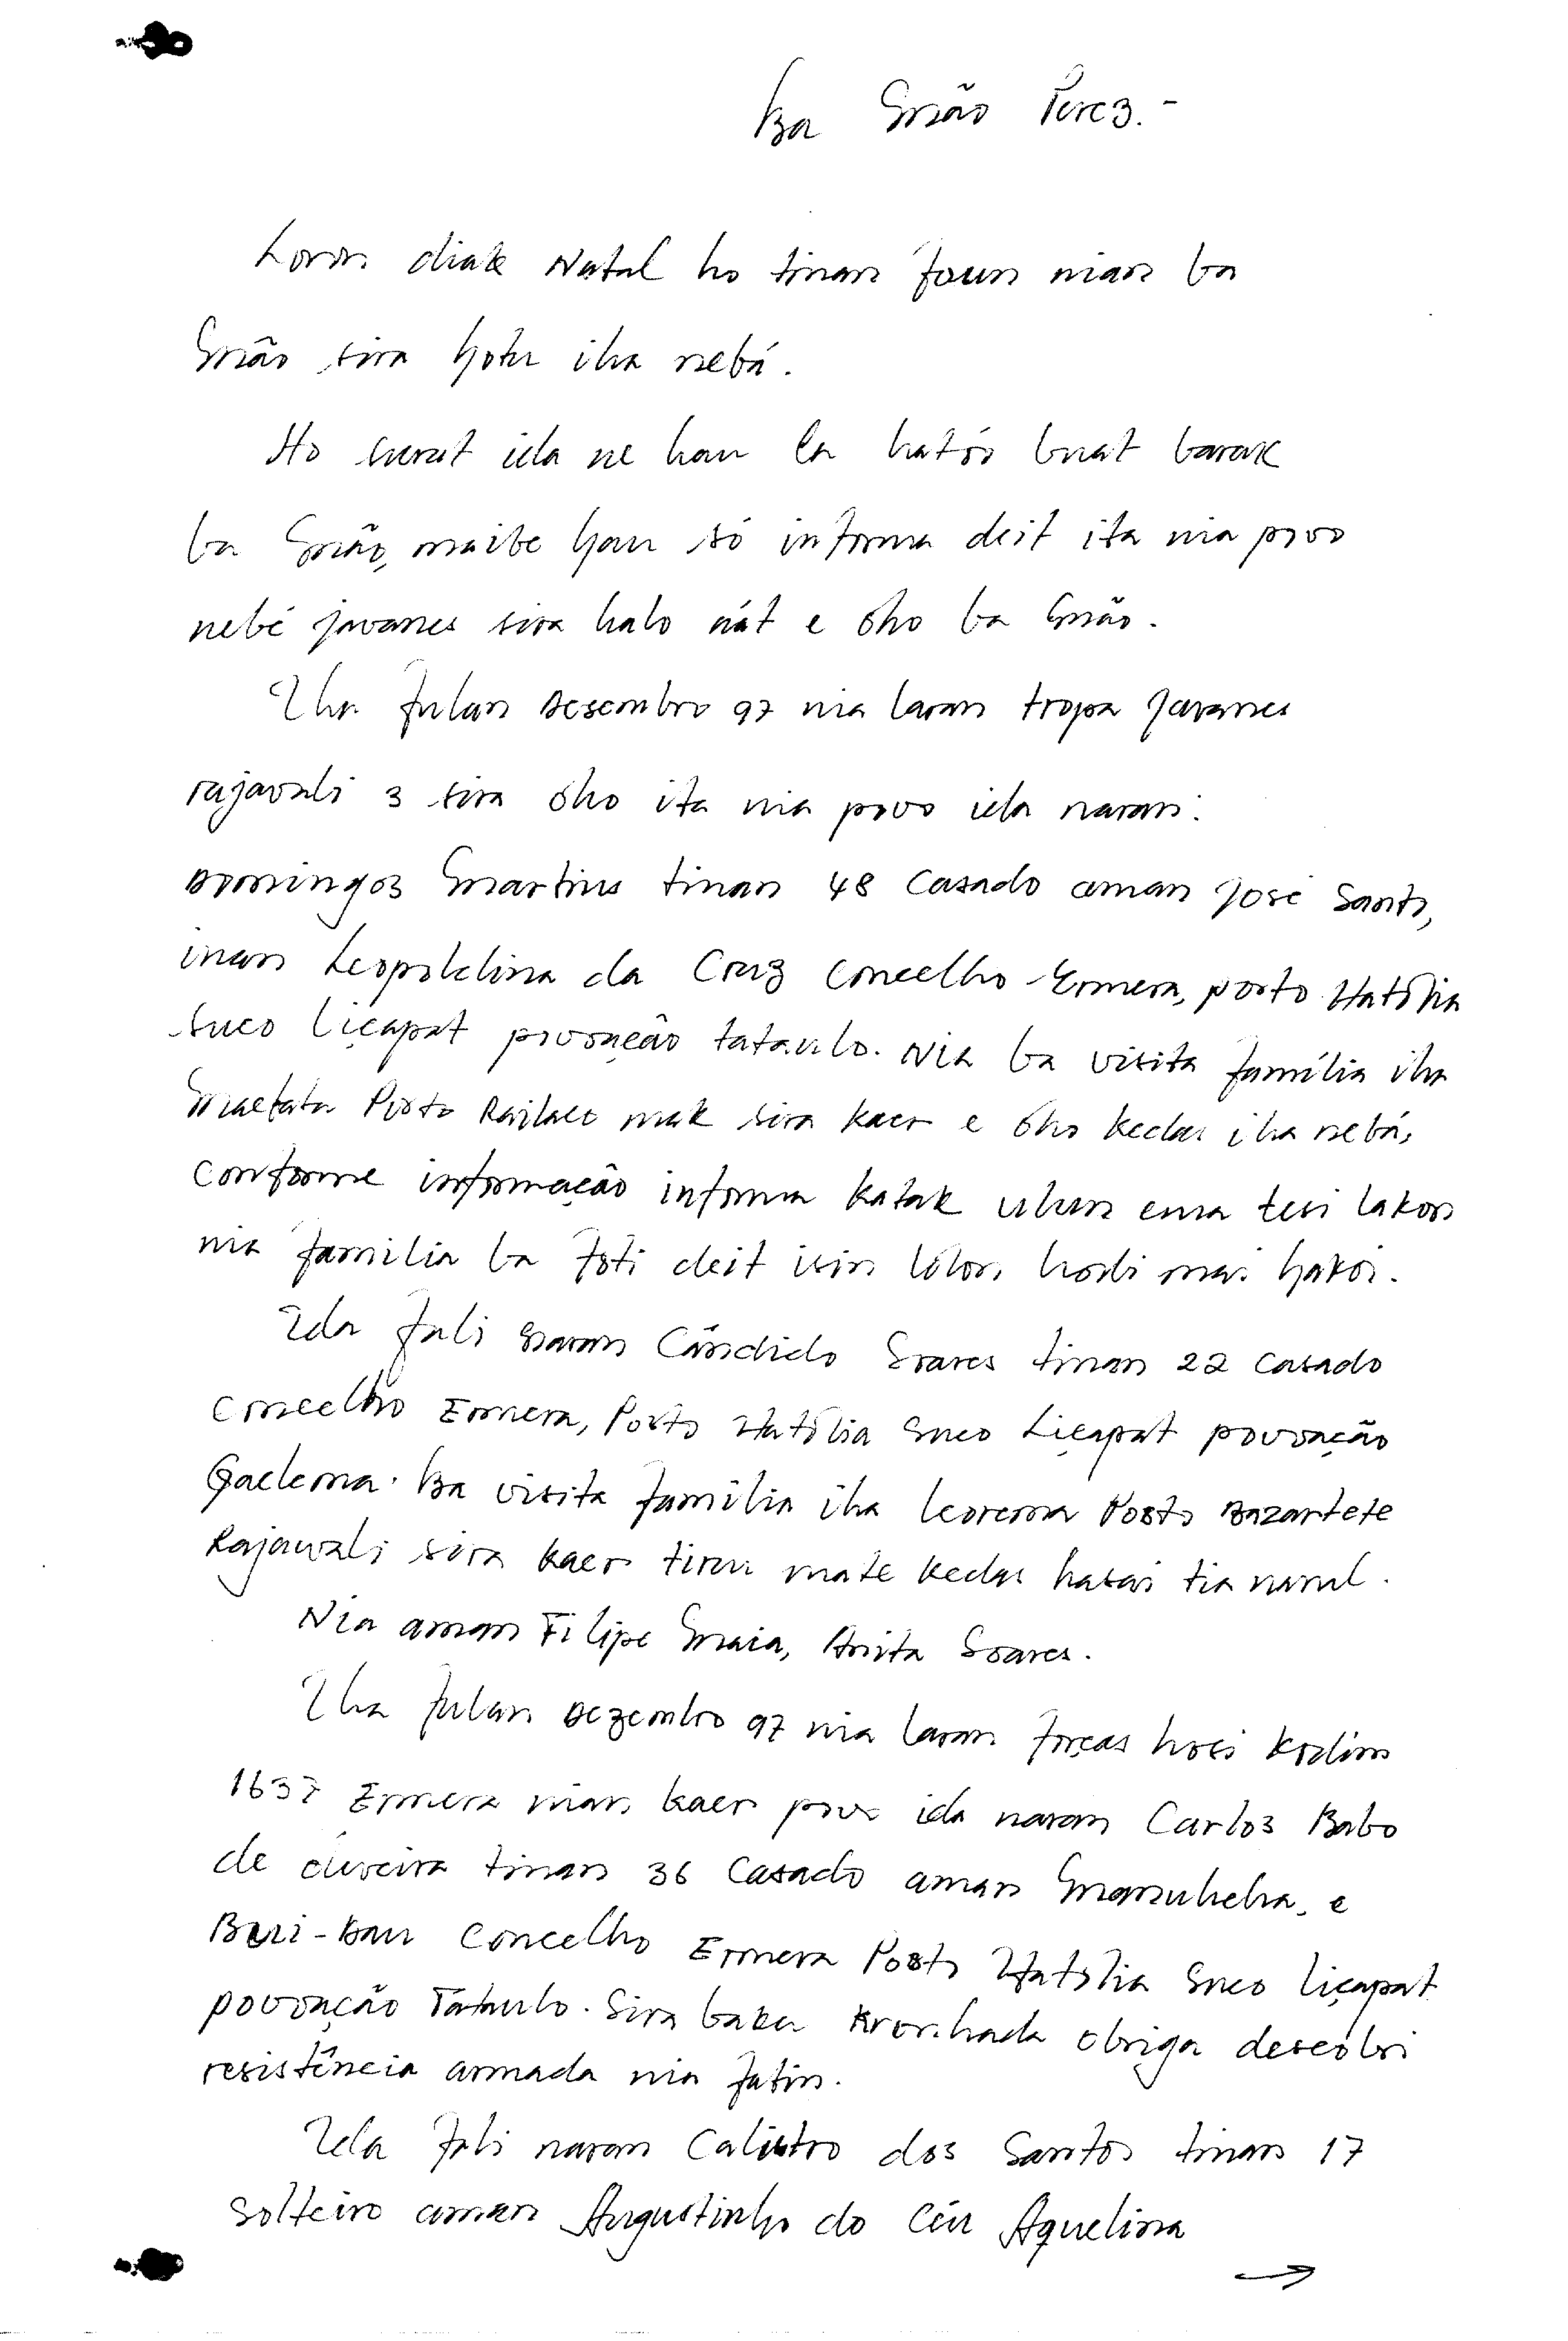 Ba Maão Perez.-
Loron diak Natal ho tinan foun nian ba
Maão sira hotu iha nebá.
Ho surat ida ne hau la hatós buat barak
ba Maão, maibe hau só informa deit ita nia povo
nebé javanes sira halo át e óho ba Maão.
Iha fulan Desembro 97 nia laran tropa Javanes
rajavali 3 sira óho ita nia povo ida naran:
Domingos Martins tinan 48 Casado aman José Santos,
inan Leopoldina da Cruz Concelho Ermera, posto Hatólia
Suco Liçapat povoação tataulo. Nia ba visita família iha
Maetata Posto Railaco mak sira kaer e óho kedas iha nebá,
Conforme informação informa katak ulun ema tesi lakon
nia família ba foti deit isin lólon hodi mai hakoi.
Ida fali naran Cândido Soares tinan 22 casado
Concelho Ermera, Posto Hatólia Suco Liçapat povoação
Gaelema. Ba visita família iha leorema Posto Bazartete
Rajawali sira kaer tiru mate kedas hasai tia
Nia aman Filipe Maia, Anita Soares.
Iha fulan Dezembro 97 nia laran forças hosi Kodim
1637 Ermera nian kaer povo ida naran Carlos Babo
de Oliveira tinan 36 Casado aman e
Beri-Bau Concelho Ermera Posto Hatólia Suco liçapat
povoação Tataulo. Sira baku obriga descobri
resistência armada nia fatin.
Ida fali naran Calistro dos Santos tinan 17
Solteiro aman Augustinho do Céu Aquelina